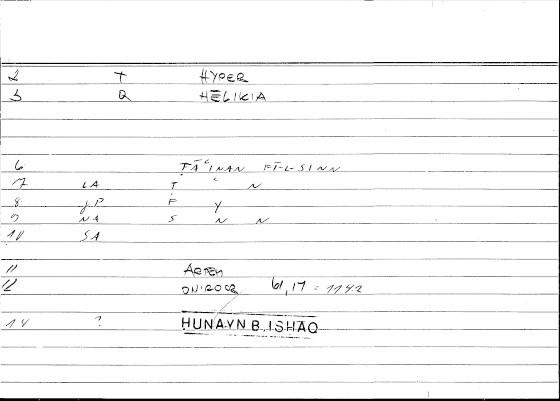 2 T HYPER
3 Q HĒLIKIA
6 ṬĀʿINAN FĪ-L-SINN
7 LA Ṭ ʿ N
8 JP F Y
9 NA S N N
10 SA
11 ARTEM
12 ONIROCR 61,17 = 114.2
14 ? HUNAYN B. ISHAQ